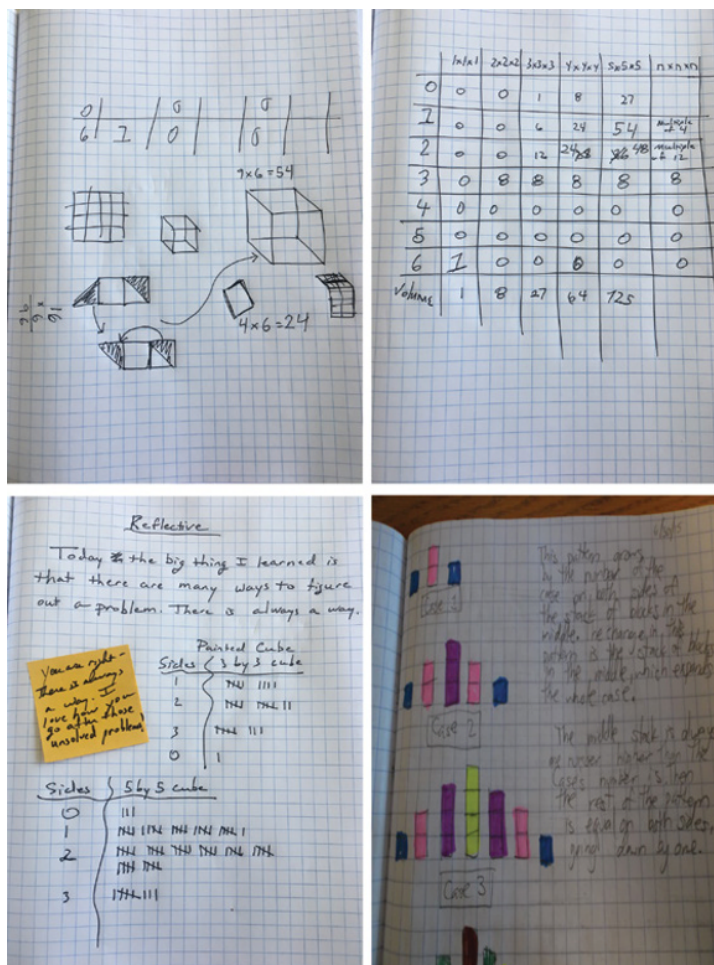 0 0 0
6 1 0 0
9x6=54
4x6=24
1x1x1 2x2x2 3x3x3 4x4x4 5x5x5 nxnxn
0 0 0 1 8 27
1 0 0 6 24 54 multiple of 6
2 0 0 12 24 48 multiple of 12
3 0 8 8 8 8 8
4 0 0 0 0 0 0
5 0 0 0 0 0 0
6 1 0 0 0 0 0
Volume 1 8 27 64 125
Reflective
Today the big thing I learned is
that there are many ways to figure
out a problem. There is always a way.
You are right -
there is always
a way. I
love how you
go after those
unsolved problems!
Painted Cube
Sides 3 by 3 cube
1
2
3
0
Sides 5 by 5 cube
0
1
2
3
This pattern grows
by the number of the
case on both sides of
the stack of blocks in the
middle. change in the
pattern is the stack of blocks
in the middle, which expands
the whole case.
Case 1
Case 2
The middle stack is always
one number higher than the
Cases number is, then
the rest of the pattern
is equal on both sides,
going down by one.
Case 3